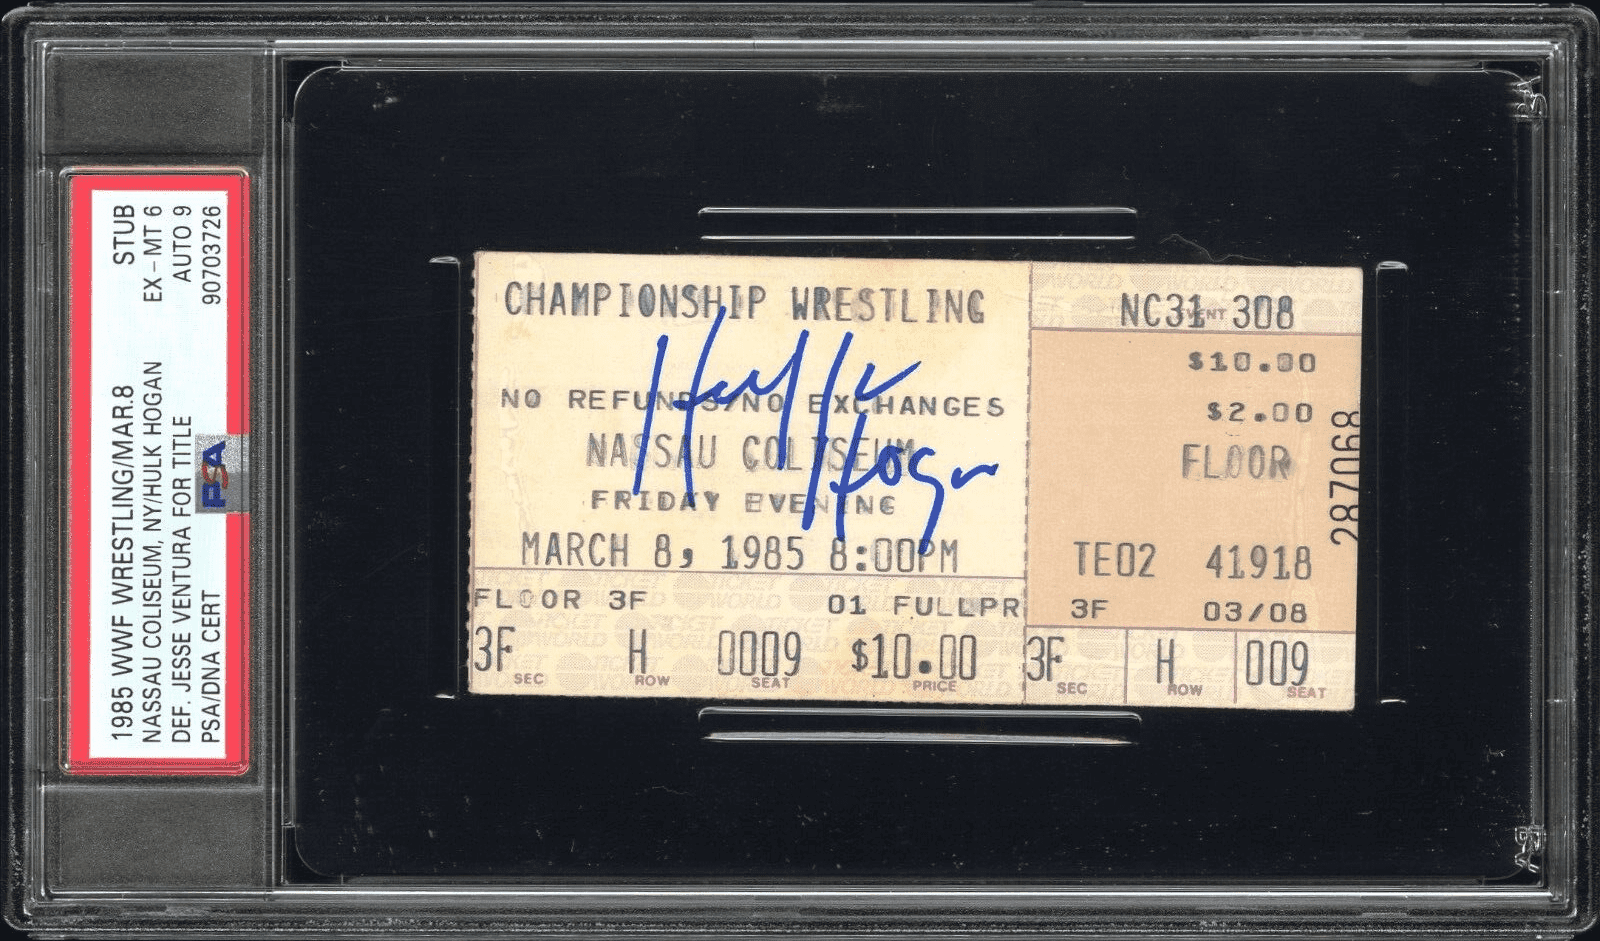 1985 WWF WRESTLING/MAR.8 STUB
NASSAU COLISEUM, NY/HULK HOGAN EX-MT 6
DEF. JESSE VENTURA FOR TITLE AUTO 9
PSA/DNA CERT 90703726
PSA
CHAMPIONSHIP WRESTLING
Hulk
Hogan
NO REFUNDS/NO EXCHANGES
NASSAU COLISEUM
FRIDAY EVENING
MARCH 8, 1985 8:00PM
FLOOR 3F 01 FULLPR
3F H 0009 $10.00
SEC ROW SEAT PRICE
NC31 308
EVENT
$10.00
$2.00
FLOOR
287068
TE02 41918
3F 03/08
3F H 009
SEC ROW SEAT
TICKET WORLD